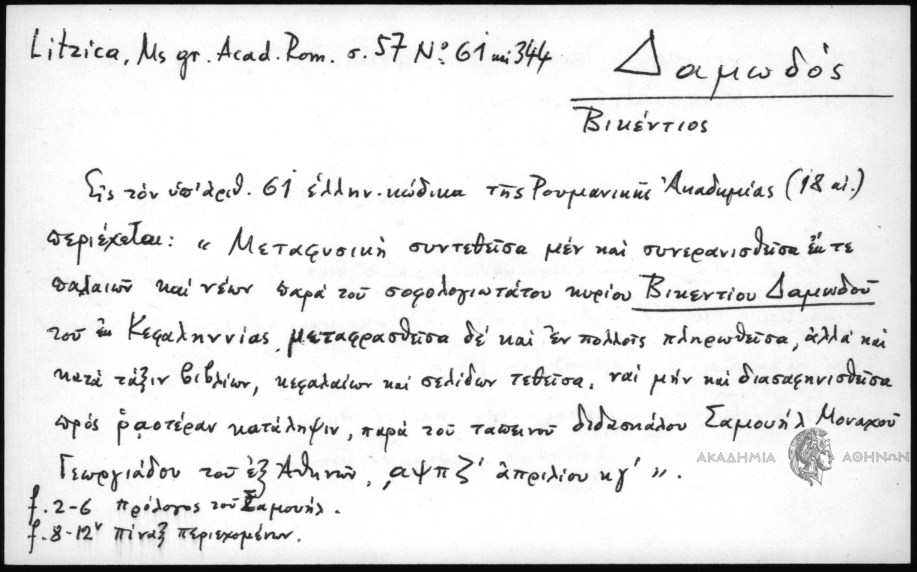 Litzica, Ms gr. Acad. Rom. σ. 57 Nº 61 344
Δαμωδός
Βικέντιος
Εἰς τὸν ὑπ' ἀριθ. 61 ἑλλην. κώδικα τῆς Ρουμανικῆς Ἀκαδημίας (18 αἰ.)
περιέχεται: « Μεταφυσικὴ συντεθεῖσα μέν καὶ συνερανισθεῖσα ἔκ τε
παλαιῶν καὶ νέων παρὰ τοῦ σοφολογιωτάτου κυρίου Βικεντίου Δαμωδοῦ
τοῦ ἐκ Κεφαληννίας, μεταφρασθεῖσα δέ καὶ ἐν πολλοῖς πληρωθεῖσα, ἀλλὰ καὶ
κατὰ τάξιν βιβλίων, κεφαλαίων καὶ σελίδων τεθεῖσα, ναὶ μήν καὶ διασαφηνισθεῖσα
πρός ῥᾳοτέραν κατάληψιν, παρὰ τοῦ ταπεινοῦ διδασκάλου Σαμουήλ Μοναχοῦ
Γεωργιάδου τοῦ ἐξ Ἀθηνῶν, ͵αψπζ' ἀπριλίου κγ' ».
ΑΚΑΔΗΜΙΑ ΑΘΗΝΩΝ
f. 2-6 πρόλογος τοῦ Σαμουήλ.
f. 8-12ᵛ πίναξ περιεχομένων.